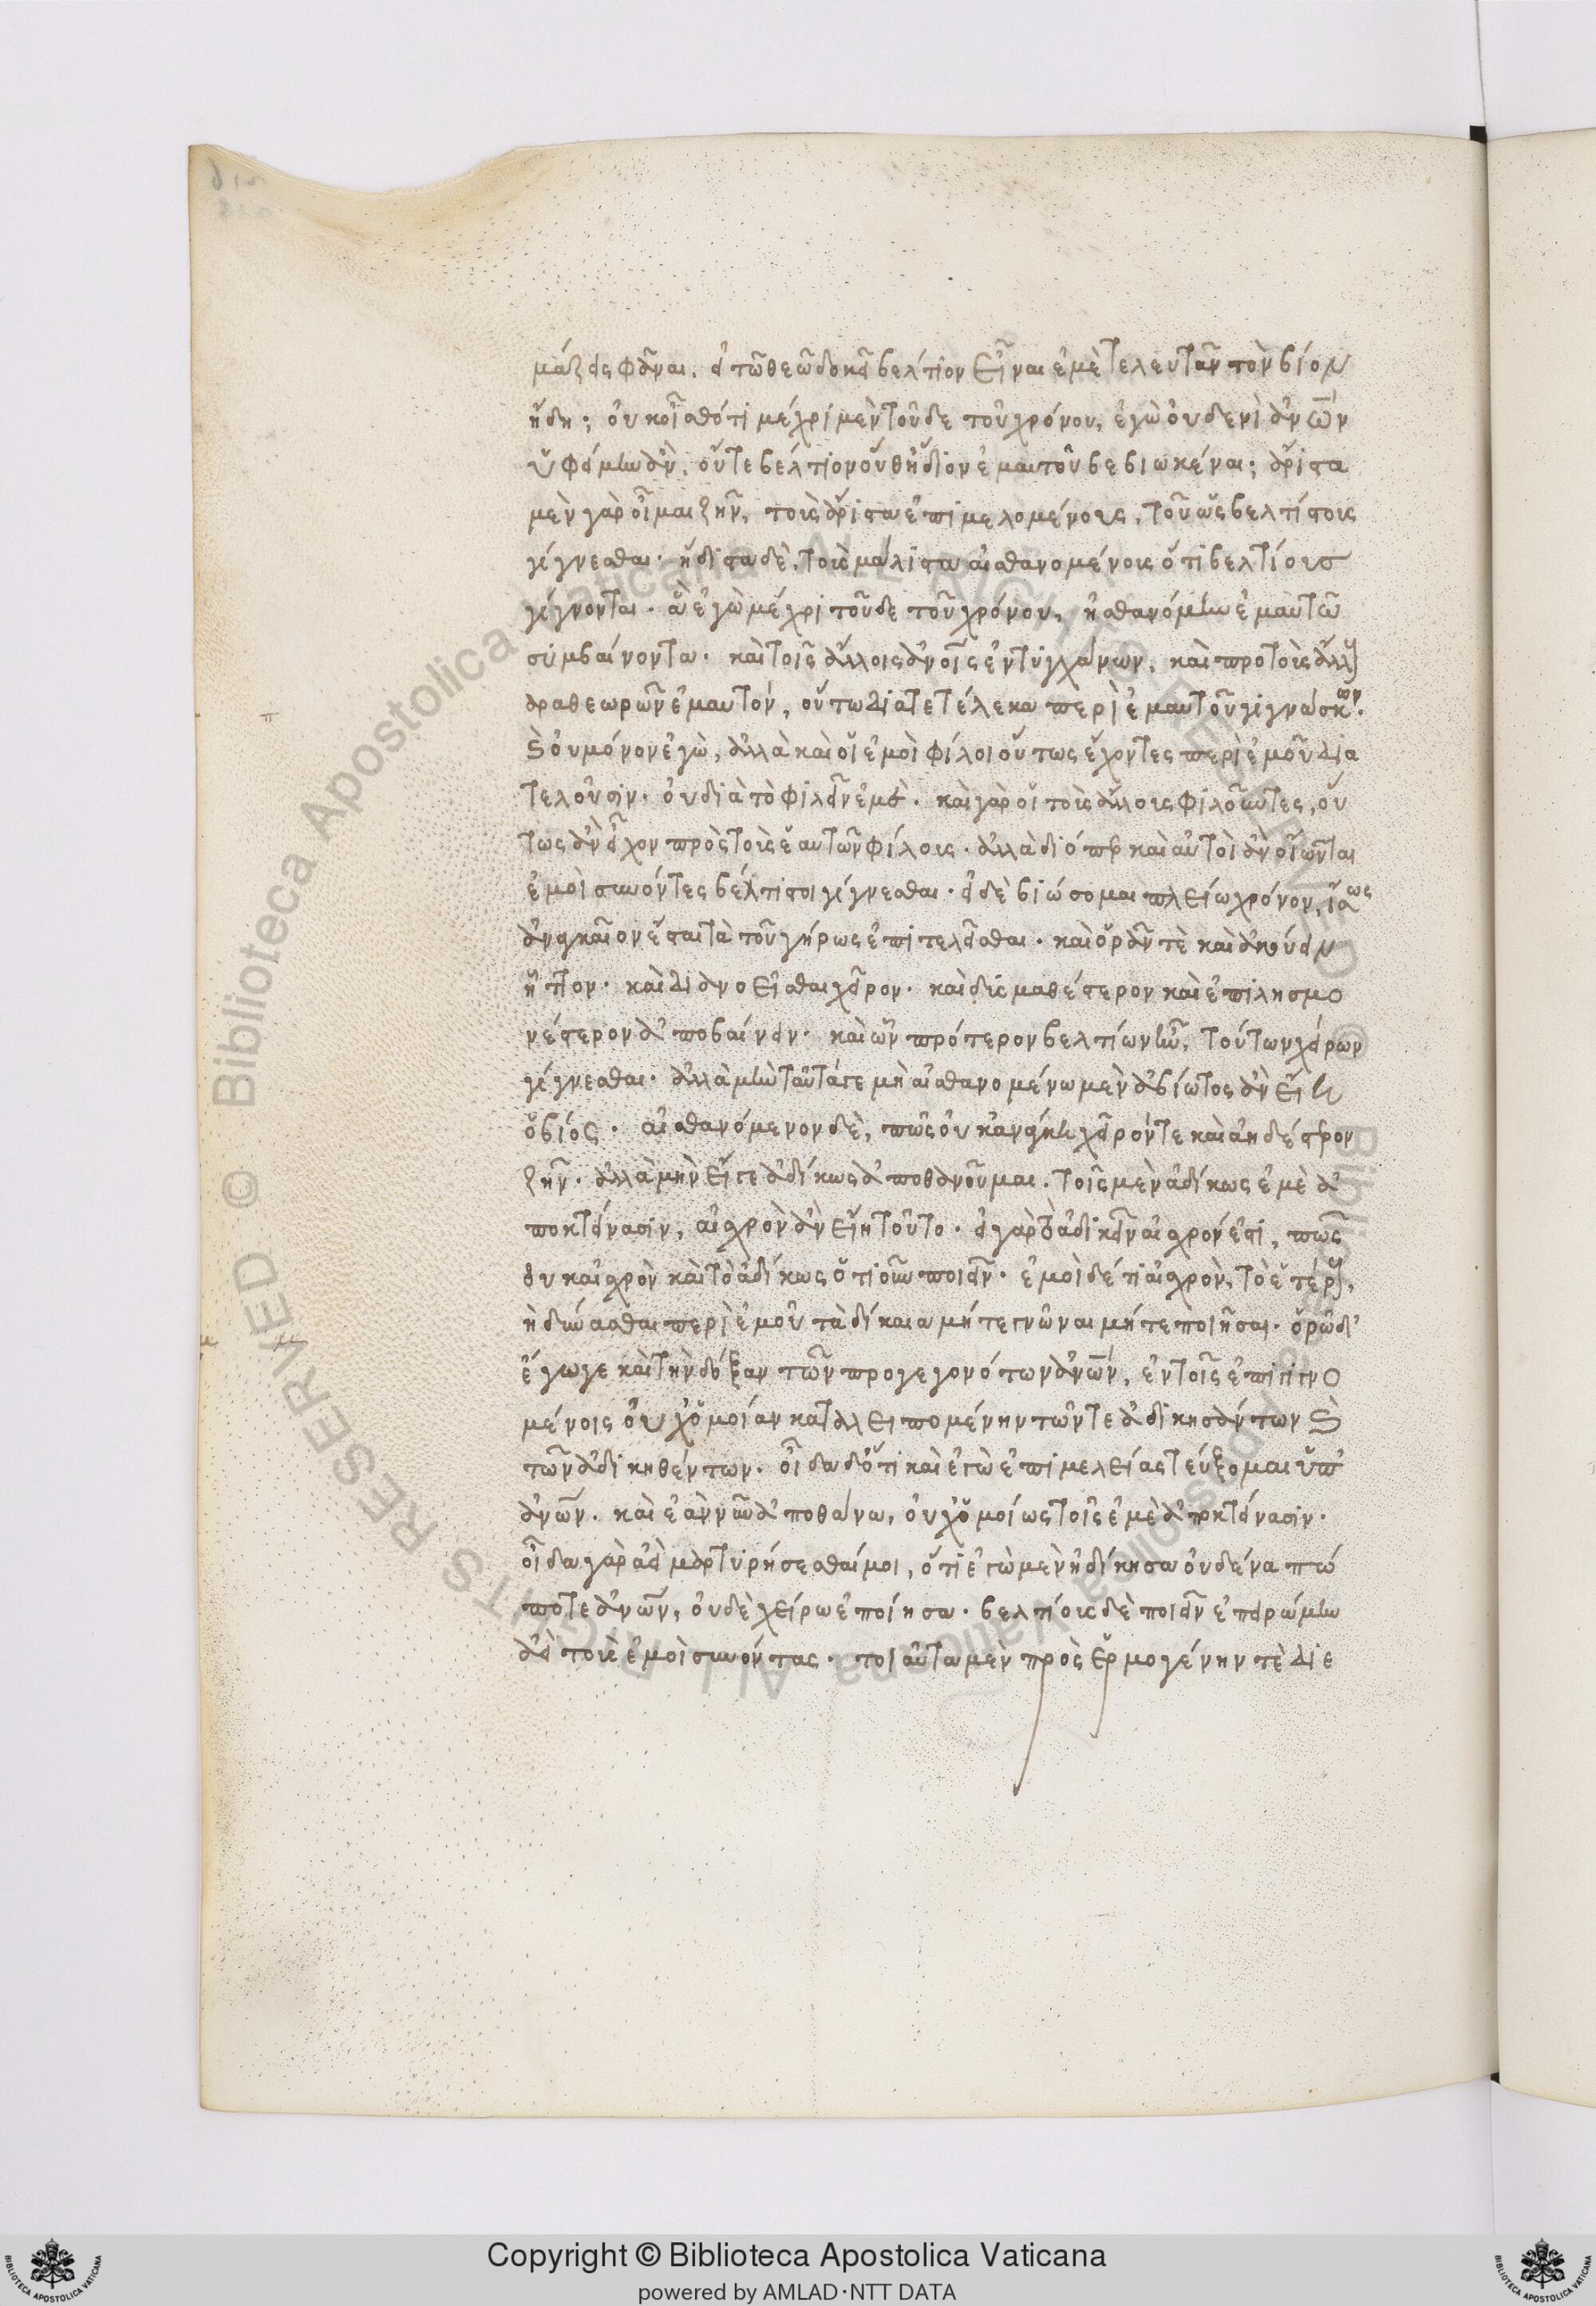 μάζεις φάναι, εἰ τῶ θεῶ δοκεῖ βέλτιον εἶναι ἐμὲ τελευτᾶν τὸν βίον
ἤδη; οὐκ οἶσθ ὅτι μέχρι μὲν τοῦδε τοῦ χρόνου, ἐγὼ οὐδενὶ ἀνων
ὑφείμην ἂν, οὔτε βέλτιον οὔθ ἥδιον ἐμαυτοῦ βεβιωκέναι; ἄριστα
μὲν γὰρ οἶμαι ζῆν, τοὺς ἄριστα ἐπιμελομένους, τοῦ ὡς βελτίστους
γίγνεσθαι· ἥδιστα δὲ, τοὺς μάλιστα αἰσθανομένους ὅτι βελτίους
γίγνονται. ἃ ἐγὼ μέχρι τοῦδε τοῦ χρόνου, ἠσθανόμην ἐμαυτῶ
συμβαίνοντα. καὶ τοῖς ἄλλοις ἀνοις ἐντυγχάνων, καὶ πρὸ τοὺς ἄλλους
παραθεωρῶν ἐμαυτόν, οὕτω διατετέλεκα περὶ ἐμαυτοῦ γιγνώσκων.
καὶ οὐ μόνον ἐγὼ, ἀλλὰ καὶ οἱ ἐμοὶ φίλοι οὕτως ἔχοντες περὶ ἐμοῦ δια
τελοῦσιν. οὐ διὰ τὸ φιλεῖν ἐμέ. καὶ γὰρ οἱ τοὺς ἄλλους φιλοῦντες, οὕ
τως ἂν εἶχον πρὸς τοὺς ἑαυτῶν φίλους. ἀλλὰ διόπερ καὶ αὐτοὶ ἂν οἴωνται
ἐμοὶ συνόντες βέλτιστοι γίγνεσθαι. εἰ δὲ βιώσομαι πλείω χρόνον, ἴσως
ἀναγκαῖον ἔσται τὰ τοῦ γήρως ἐπιτελεῖσθαι. καὶ ὁρᾶν τὲ καὶ ἀκούειν
ἧττον. καὶ διανοεῖσθαι χεῖρον. καὶ δυσμαθέστερον καὶ ἐπιλησμο
νέστερον ἀποβαίνειν. καὶ ὧν πρότερον βελτίων ἦν, τούτων χείρων
γίγνεσθαι. ἀλλὰ μὴν ταῦτά γε μὴ αἰσθανομένω μὲν ἀβίωτος ἂν εἴη
ὁ βίος. αἰσθανόμενον δὲ, πῶς οὐκ ἀνάγκη χεῖρόν τε καὶ ἀηδέστερον
ζῆν. ἀλλὰ μὴν εἴ γε ἀδίκως ἀποθανοῦμαι. τοῖς μὲν ἀδίκως ἐμὲ ἀ
ποκτείνασιν, αἰσχρὸν ἂν εἴη τοῦτο. εἰ γὰρ τὸ ἀδικεῖν αἰσχρόν ἐστι, πῶς
οὐκ αἰσχρὸν καὶ τὸ ἀδίκως ὁτιοῦν ποιεῖν. ἐμοὶ δέ τι αἰσχρὸν, τὸ ἑτέρους,
ἢ δύνασθαι περὶ ἐμοῦ τὰ δίκαια μήτε γνῶναι μήτε ποιῆσαι. ὁρῶ δ'
ἔγωγε καὶ τὴν δόξαν τῶν προγεγονότων ἀνων, ἐν τοῖς ἐπιγιγνο
μένοις οὐχ ὁμοίαν καταλειπομένην τῶν τε ἀδικησάντων καὶ
τῶν ἀδικηθέντων. οἶδα δὲ ὅτι καὶ ἐγὼ ἐπιμελείας τεύξομαι ὑπ'
ἀνων. καὶ ἐὰν νῦν ἀποθάνω, οὐχ ὁμοίως τοῖς ἐμὲ ἀποκτείνασιν.
οἶδα γὰρ ἀεὶ μαρτυρήσεσθαί μοι, ὅτι ἐγὼ μὲν ἠδίκησα οὐδένα πώ
ποτε ἀνων, οὐδὲ χείρω ἐποίησα. βελτίους δὲ ποιεῖν ἐπειρώμην
ἀεὶ τοὺς ἐμοὶ συνόντας. τοιαῦτα μὲν πρὸς ἑρμογένην τὲ διε
Copyright © Biblioteca Apostolica Vaticana
powered by AMLAD·NTT DATA